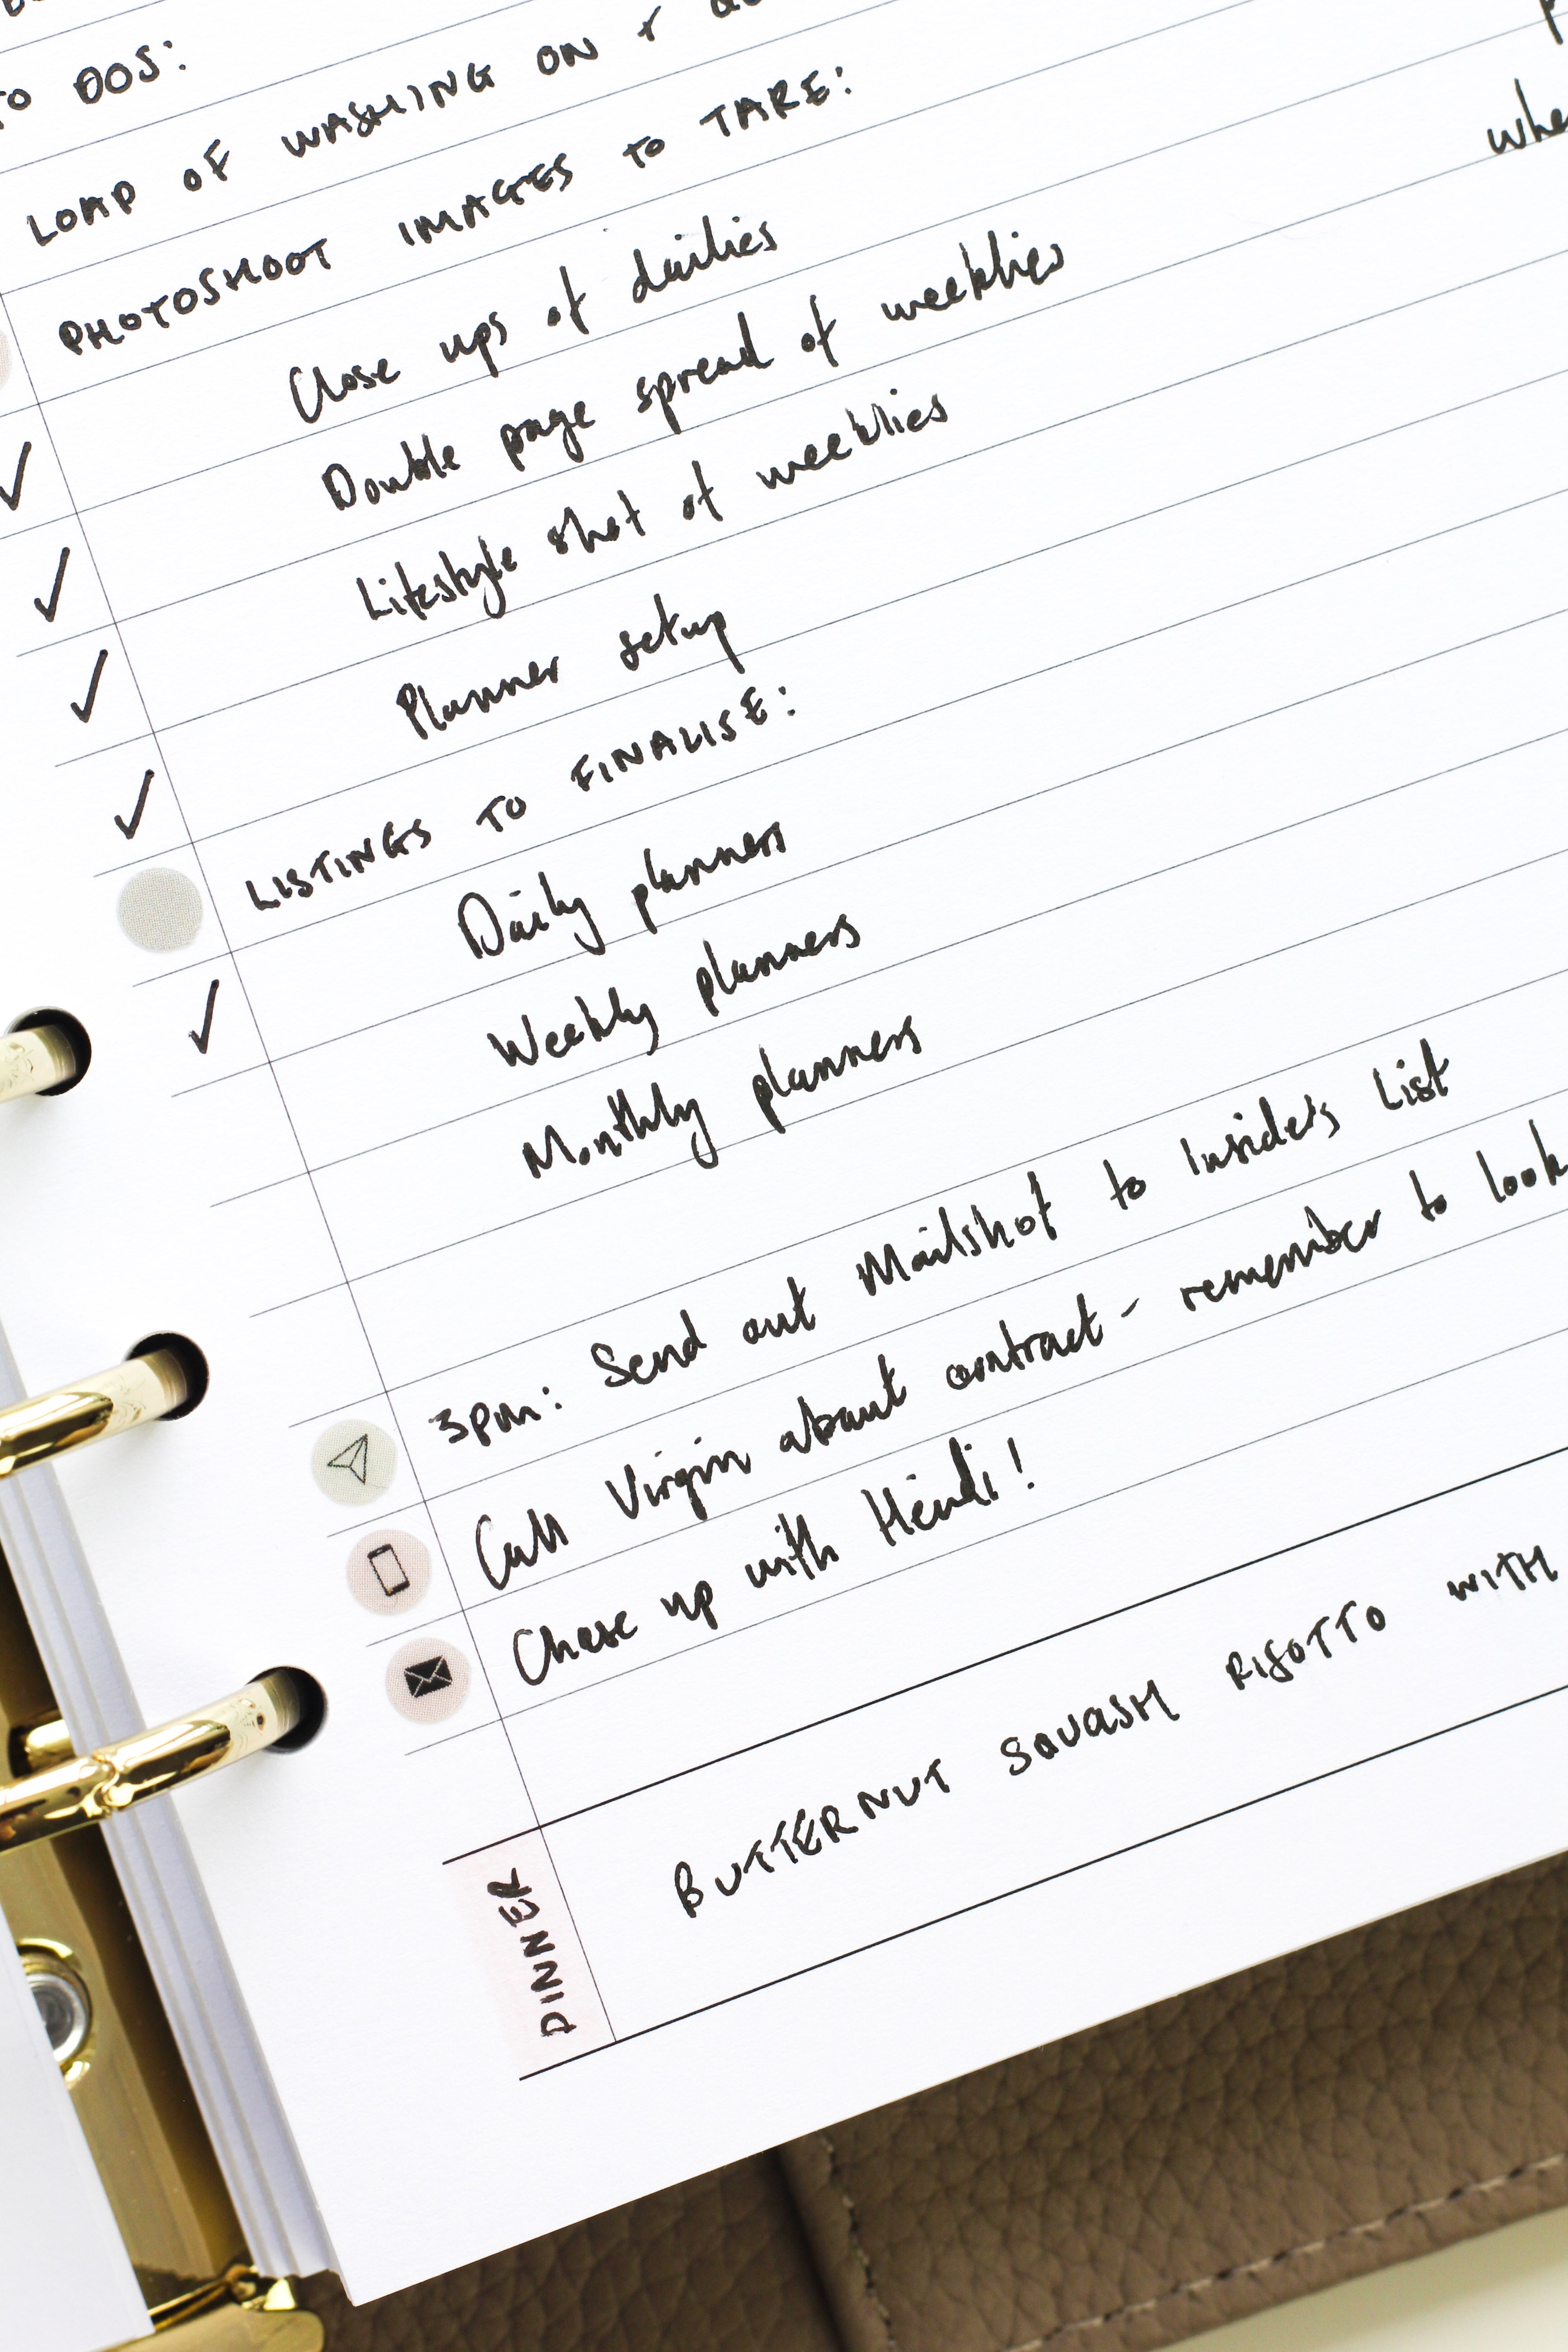 TO DOS:
LOAD OF WASHING ON +
PHOTOSHOOT IMAGES TO TAKE:
Close ups of dailies
Double page spread of weeklies
Lifestyle shot of weeklies
Planner setup
LISTINGS TO FINALISE:
Daily planners
Weekly planners
Monthly planners
3pm: Send out Mailshot to Insiders List
Call Virgin about contract - remember to look
Chase up with Heidi!
DINNER
BUTTERNUT SQUASH RISOTTO WITH